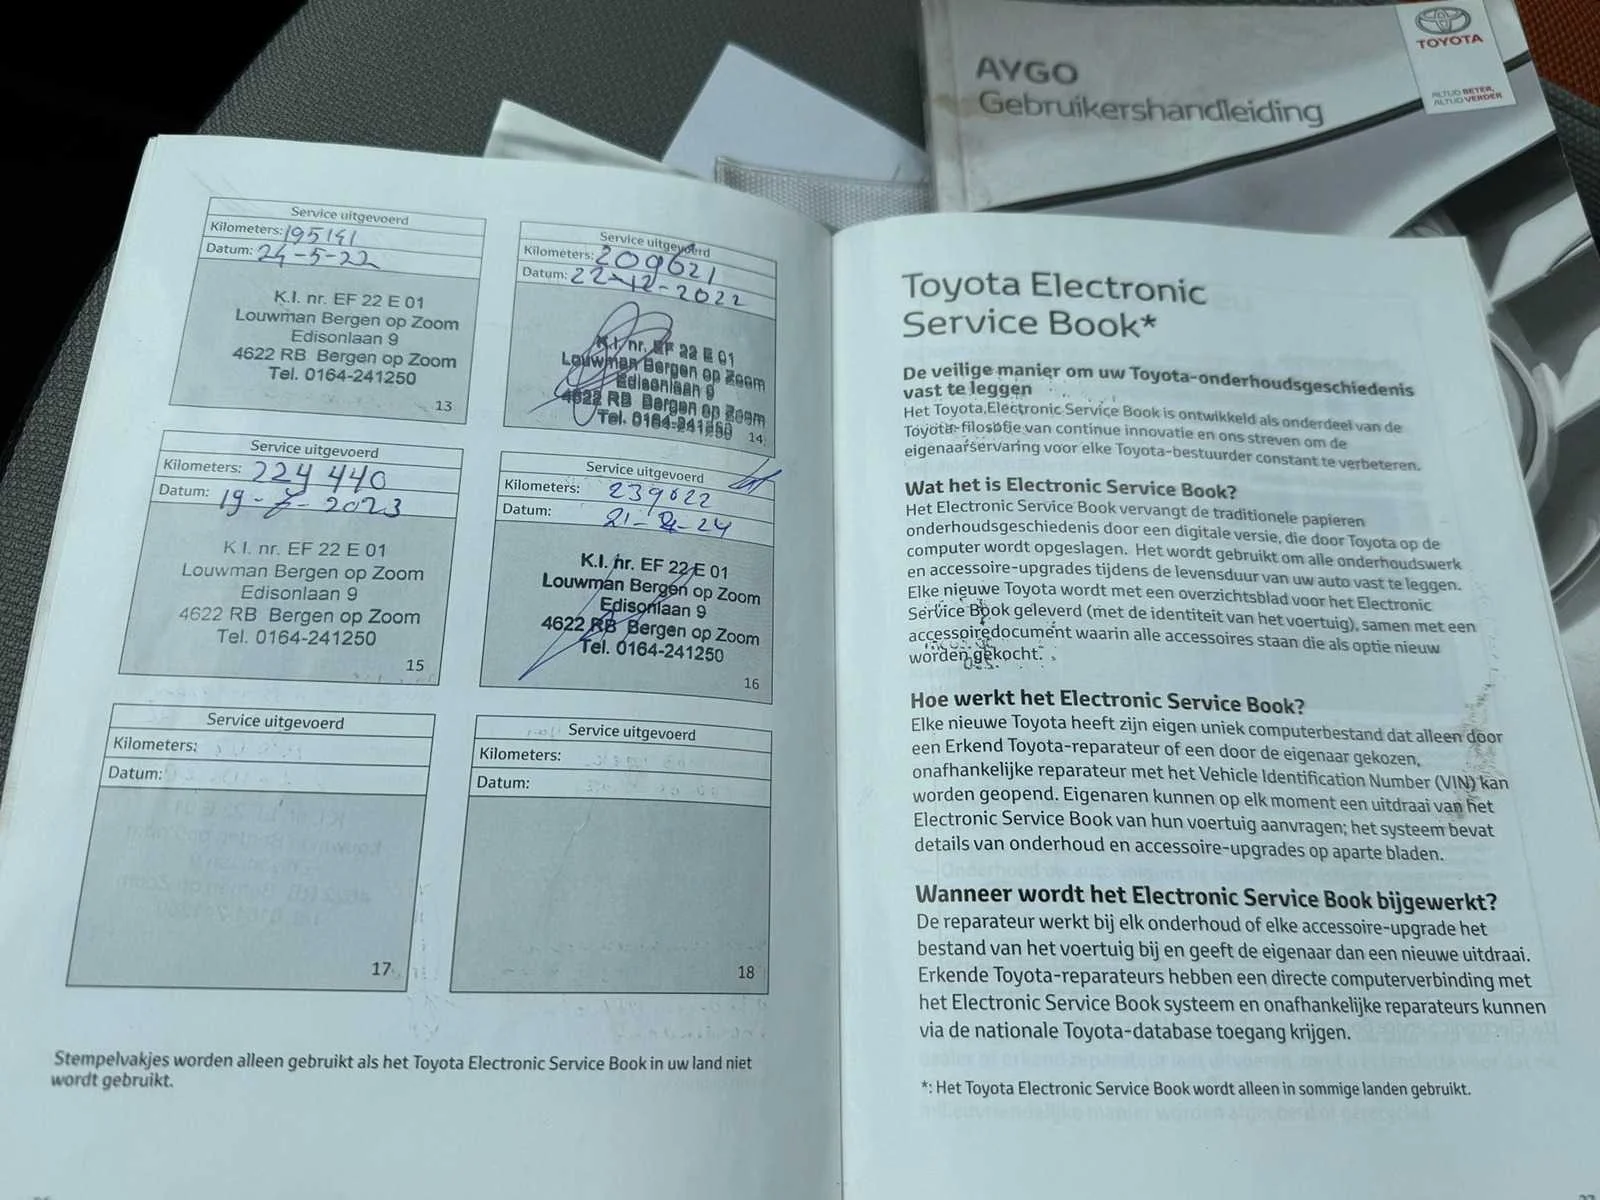 TOYOTA
ALTIJD BETER,
ALTIJD VERDER
AYGO
Gebruikershandleiding
Service uitgevoerd
Kilometers: 195141
Datum: 24-5-22
K.I. nr. EF 22 E 01
Louwman Bergen op Zoom
Edisonlaan 9
4622 RB Bergen op Zoom
Tel. 0164-241250
13
Service uitgevoerd
Kilometers: 209621
Datum: 22-12-2022
K.I. nr. EF 22 E 01
Louwman Bergen op Zoom
Edisonlaan 9
4622 RB Bergen op Zoom
Tel. 0164-241250
14
Service uitgevoerd
Kilometers: 224 440
Datum: 19-7-2023
K.I. nr. EF 22 E 01
Louwman Bergen op Zoom
Edisonlaan 9
4622 RB Bergen op Zoom
Tel. 0164-241250
15
Service uitgevoerd
Kilometers: 239022
Datum:
K.I. nr. EF 22 E 01
Louwman Bergen op Zoom
Edisonlaan 9
4622 RB Bergen op Zoom
Tel. 0164-241250
16
Service uitgevoerd
Kilometers:
Datum:
17
Service uitgevoerd
Kilometers:
Datum:
18
Stempelvakjes worden alleen gebruikt als het Toyota Electronic Service Book in uw land niet
wordt gebruikt.
Toyota Electronic
Service Book*
De veilige manier om uw Toyota-onderhoudsgeschiedenis
vast te leggen
Het Toyota Electronic Service Book is ontwikkeld als onderdeel van de
Toyota-filosofie van continue innovatie en ons streven om de
eigenaarservaring voor elke Toyota-bestuurder constant te verbeteren.
Wat het is Electronic Service Book?
Het Electronic Service Book vervangt de traditionele papieren
onderhoudsgeschiedenis door een digitale versie, die door Toyota op de
computer wordt opgeslagen. Het wordt gebruikt om alle onderhoudswerk
en accessoire-upgrades tijdens de levensduur van uw auto vast te leggen.
Elke nieuwe Toyota wordt met een overzichtsblad voor het Electronic
Service Book geleverd (met de identiteit van het voertuig), samen met een
accessoiredocument waarin alle accessoires staan die als optie nieuw
worden gekocht.
Hoe werkt het Electronic Service Book?
Elke nieuwe Toyota heeft zijn eigen uniek computerbestand dat alleen door
een Erkend Toyota-reparateur of een door de eigenaar gekozen,
onafhankelijke reparateur met het Vehicle Identification Number (VIN) kan
worden geopend. Eigenaren kunnen op elk moment een uitdraai van het
Electronic Service Book van hun voertuig aanvragen; het systeem bevat
details van onderhoud en accessoire-upgrades op aparte bladen.
Wanneer wordt het Electronic Service Book bijgewerkt?
De reparateur werkt bij elk onderhoud of elke accessoire-upgrade het
bestand van het voertuig bij en geeft de eigenaar dan een nieuwe uitdraai.
Erkende Toyota-reparateurs hebben een directe computerverbinding met
het Electronic Service Book systeem en onafhankelijke reparateurs kunnen
via de nationale Toyota-database toegang krijgen.
*: Het Toyota Electronic Service Book wordt alleen in sommige landen gebruikt.